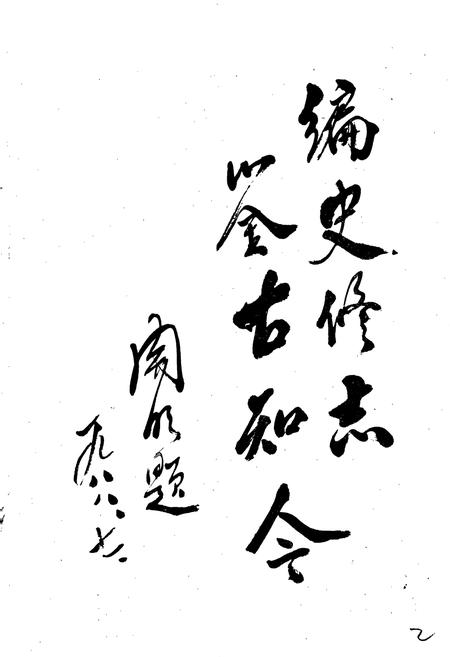 编史修志
鉴古知今
题
一九八八、七、
乙